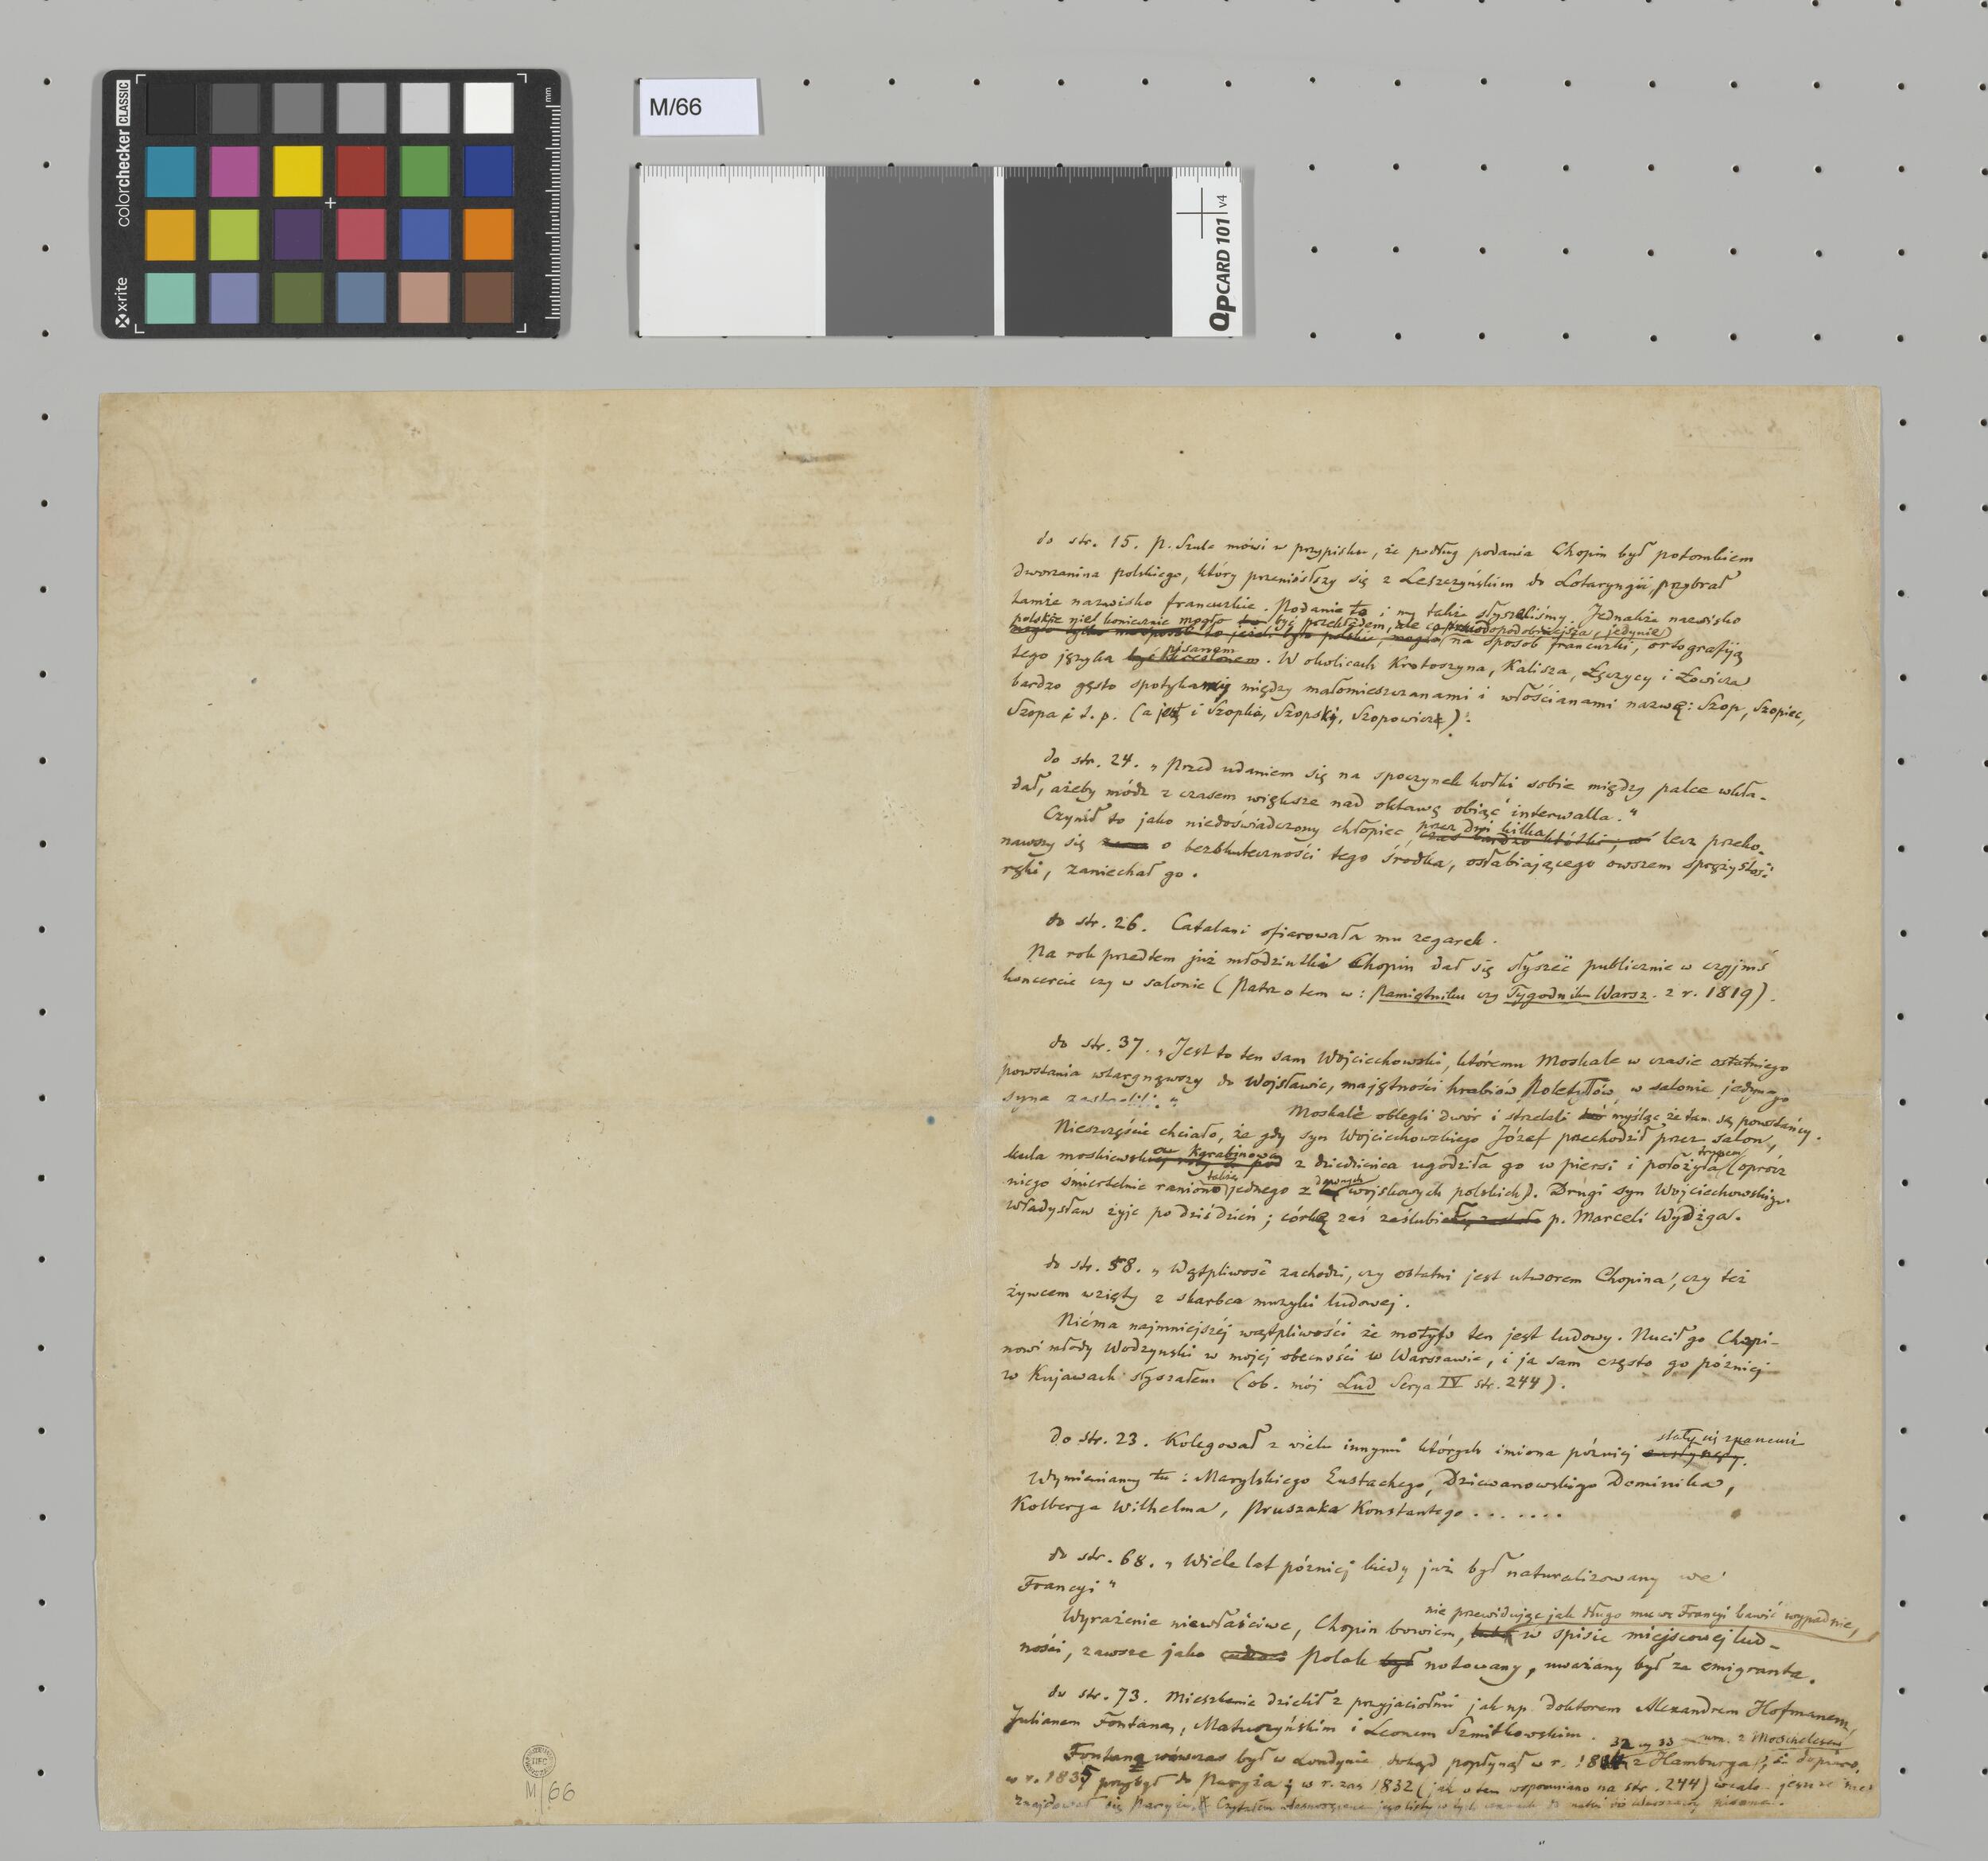 colorchecker CLASSIC
x-rite
mm
M/66
QPCARD 101 v4
do str. 15. p. Szulc mówi w przypisku, że podług podania Chopin był potomkiem
dworzanina polskiego, który przeniósłszy się z Leszczyńskim do Lotaryngii, przybrał
tamże nazwisko francuzkie. Podanie to i my także słyszeliśmy. Jednakże nazwisko
polskie niekoniecznie mogło być przekładem, ale co prawdopodobniejsza, jedynie
na sposób francuzki, ortografiją
pisanem
tego języka być kreślonem. W okolicach Krotoszyna, Kalisza, Łęczycy i Łowicza
bardzo gęsto spotykamy między małomieszczanami i włościanami nazwę: Szop, Szopiec,
Szopa i t. p. (a jest i Szopka, Szopski, Szopowicz).
do str. 24. „Przed udaniem się na spoczynek kołki sobie między palce wkła-
dał, ażeby módz z czasem większe nad oktawę objąć interwalla."
przez dni kilka
Czynił to jako niedoświadczony chłopiec czas bardzo krótki; lecz przeko-
nawszy się o bezskuteczności tego środka, osłabiającego owszem sprężystość
ręki, zaniechał go.
do str. 26. Catalani ofiarowała mu zegarek.
Na rok przedtem już młodziutki Chopin dał się słyszeć publicznie w czyjmś
koncercie czy w salonie (Patrz o tem w: Pamiętniku czy Tygodniku Warsz. z r. 1819).
do str. 37. „Jest to ten sam Wojciechowski, któremu Moskale w czasie ostatniego
powstania wtargnąwszy do Wojsławic, majętności hrabiów Poletyłów, w salonie jedynego
syna zastrzelili."
Moskale oblegli dwór i strzelali myśląc że tam są powstańcy.
Nieszczęście chciało, że gdy syn Wojciechowskiego Józef przechodził przez salon,
karabinowa
trupem
kula moskiewska z dziedzińca ugodziła go w piersi i położyła (oprócz
także
dawnych
niego śmiertelnie raniono jednego z wojskowych polskich). Drugi syn Wojciechowskiego
Władysław żyje po dziś dzień; córkę zaś zaślubił p. Marceli Wydżga.
do str. 58. „Wątpliwość zachodzi, czy ostatni jest utworem Chopina, czy też
żywcem wzięty z skarbca muzyki ludowej.
Niéma najmniejszéj wątpliwości że motyw ten jest ludowy. Nucił go Chopi-
nowi młody Wodzyński w mojej obecności w Warszawie, i ja sam często go później
w Kujawach słyszałem (ob. mój Lud Serya IV str. 244).
stały się znanemi
do str. 23. Kolegował z wielu innymi których imiona później zasłynęły.
Wymieniamy tu: Marylskiego Eustachego, Dziewanowskiego Dominika,
Kolberga Wilhelma, Pruszaka Konstantego . . . . . . .
do str. 68. „Wiele lat później kiedy już był naturalizowany we
Francyi"
nie przewidując jak długo mu we Francyi bawić wypadnie,
Wyrażenie niewłaściwe, Chopin bowiem, w spisie miejscowej lud-
ności, zawsze jako Polak był notowany, uważany był za emigranta.
do str. 73. Mieszkanie dzielił z przyjaciołmi jak np. doktorem Alexandrem Hofmanem,
Julianem Fontaną, Matuszyńskim i Leonem Szmitkowskim.
32 czy 33 z Moschelesem
Fontana wówczas był w Londynie dokąd popłynął w r. 18 z Hamburga, i dopiero
w r. 1835 przybył do Paryża; w r. zaś 1832 (jak o tem wspomniano na str. 244) wcale jeszcze nie
znajdował się Paryżu. Czytałem własnoręczne jego listy w tych czasach do matki do Warszawy pisane.
M/66